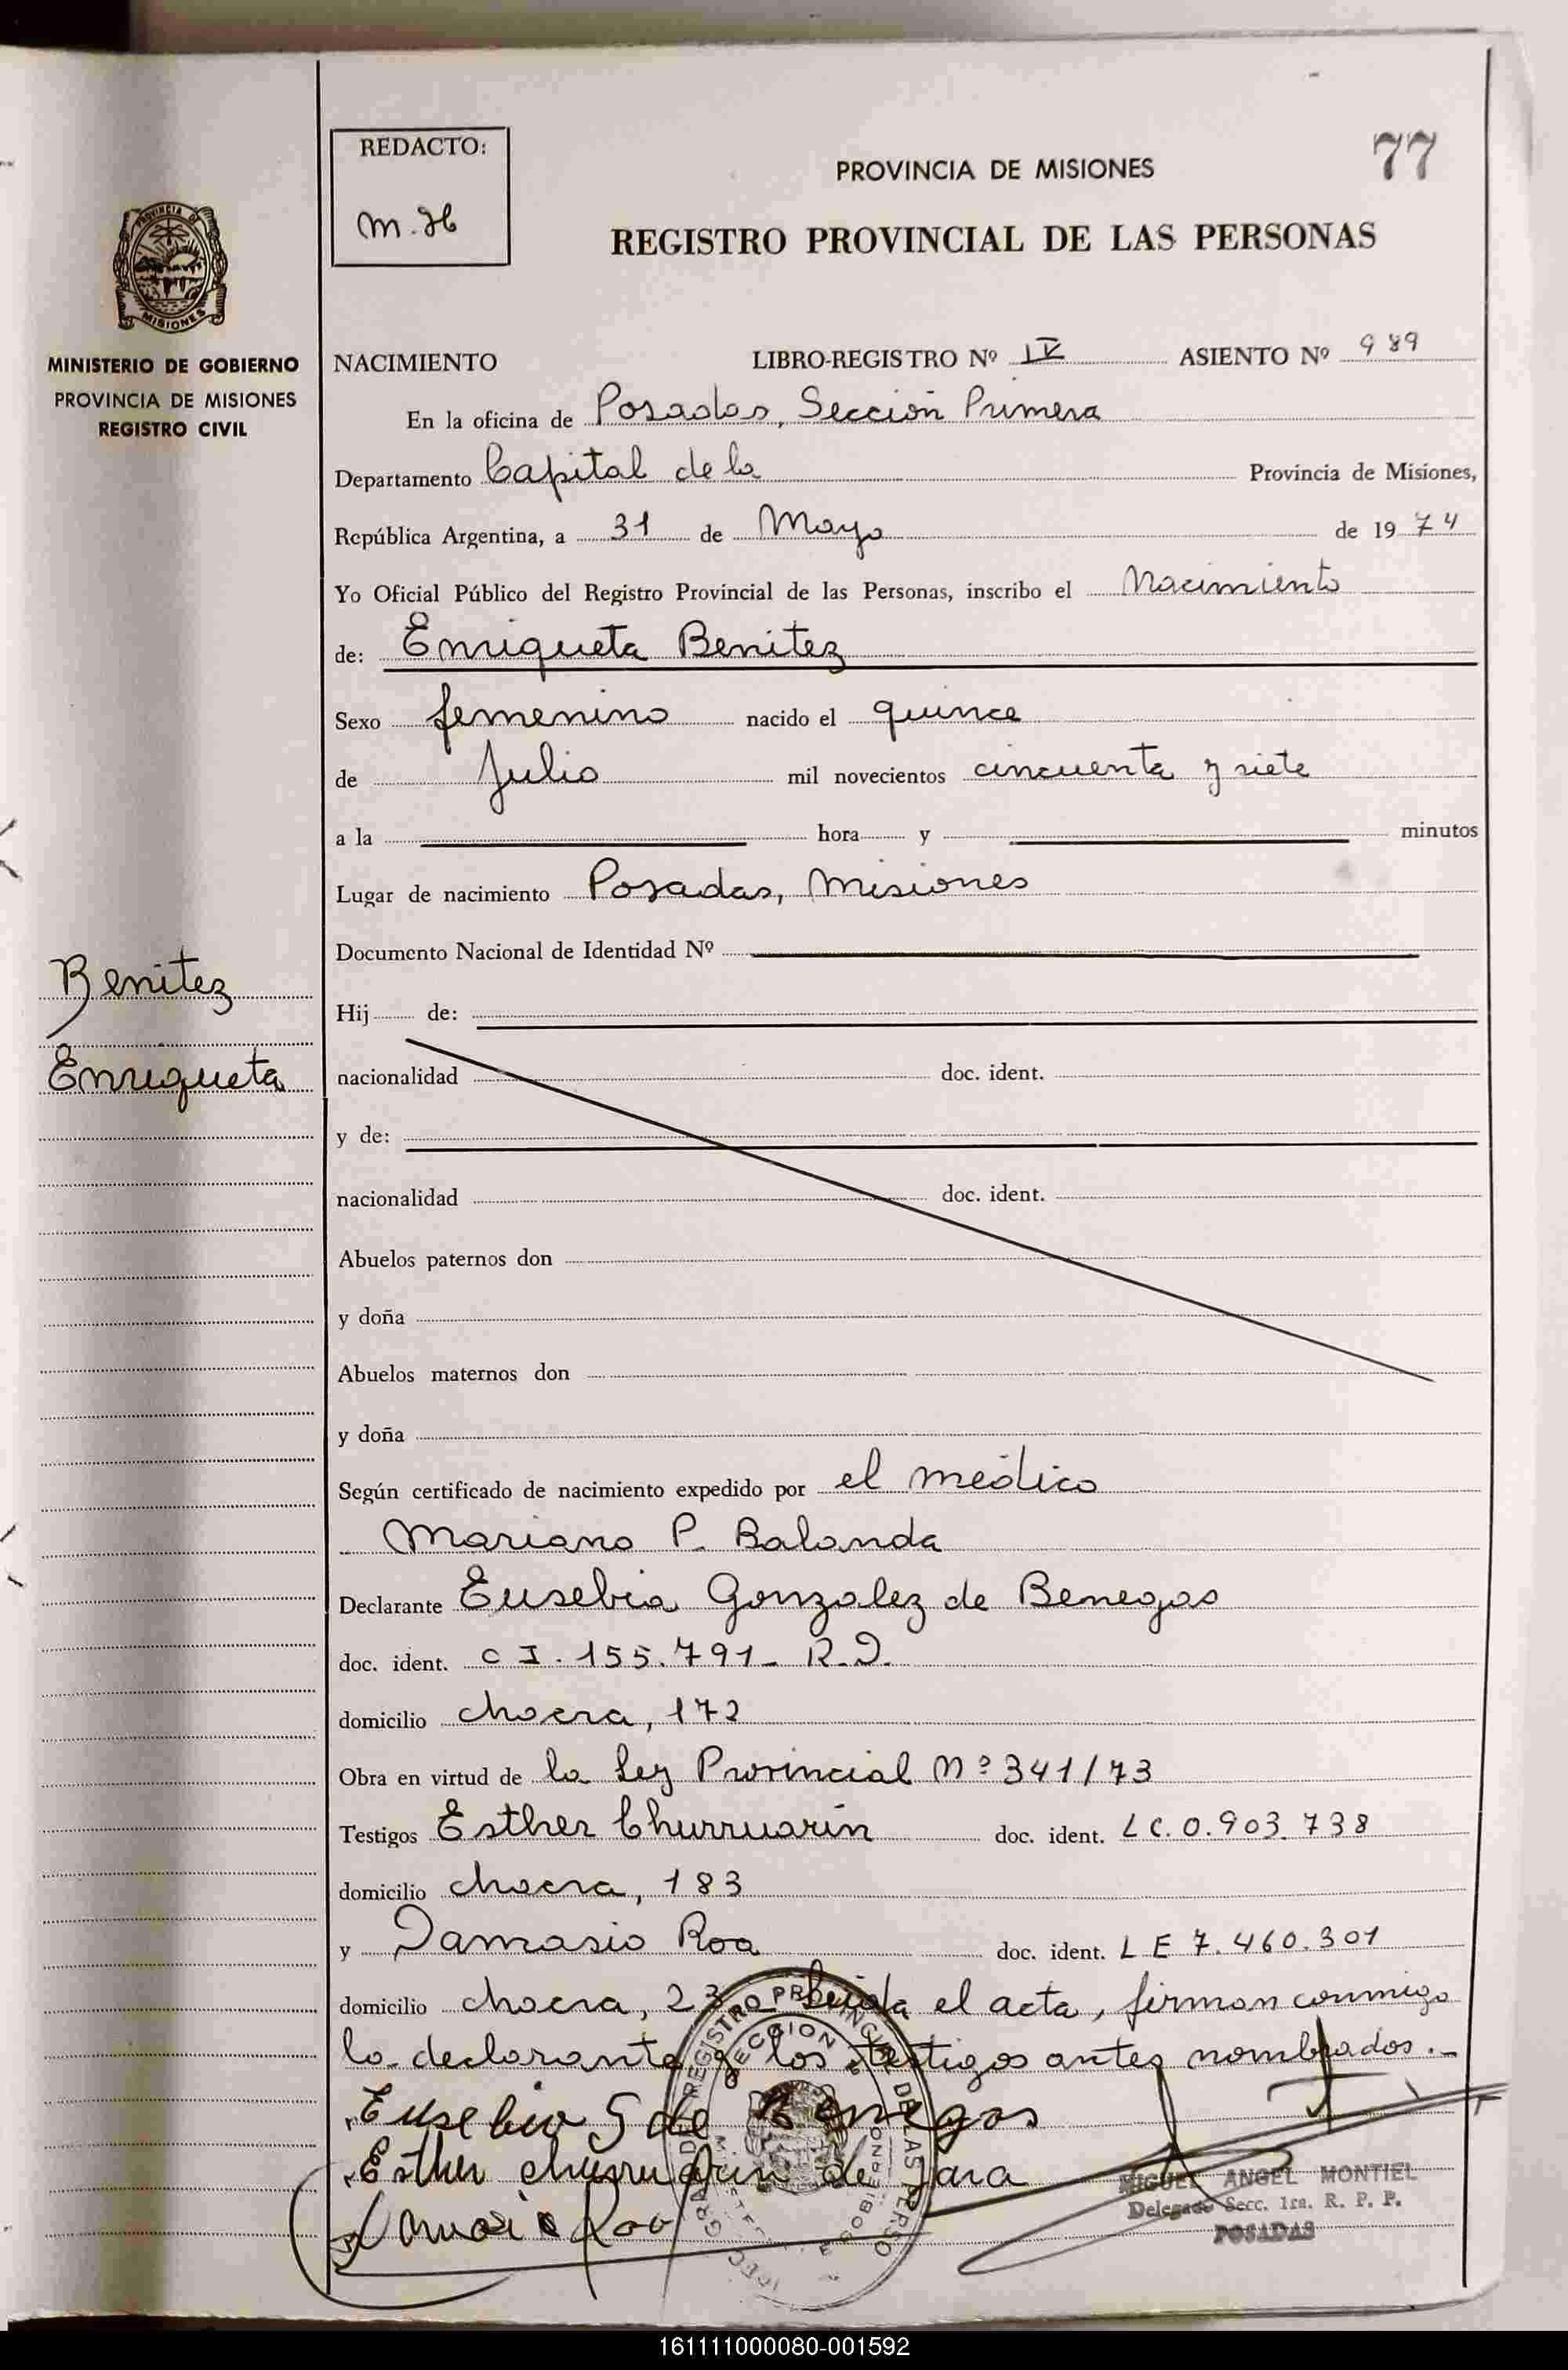 77
REDACTO:
PROVINCIA DE MISIONES
REGISTRO PROVINCIAL DE LAS PERSONAS
PROVINCIA DE
MISIONES
MINISTERIO DE GOBIERNO
PROVINCIA DE MISIONES
REGISTRO CIVIL
Benitez
Enriqueta
NACIMIENTO LIBRO-REGISTRO Nº IV ASIENTO Nº 989
En la oficina de Posadas, Sección Primera
Departamento Capital de la Provincia de Misiones,
República Argentina, a 31 de Mayo de 1974
Yo Oficial Público del Registro Provincial de las Personas, inscribo el Nacimiento
de: Enriqueta Benitez
Sexo femenino nacido el quince
de Julio mil novecientos cincuenta y siete
a la hora y minutos
Lugar de nacimiento Posadas, Misiones
Documento Nacional de Identidad Nº
Hij de:
nacionalidad doc. ident.
y de:
nacionalidad doc. ident.
Abuelos paternos don
y doña
Abuelos maternos don
y doña
Según certificado de nacimiento expedido por el médico
Mariano P. Balanda
Declarante Eusebia Gonzalez de Benegas
doc. ident. C I. 155.791_
domicilio chacra, 172
Obra en virtud de la Ley Provincial Nº 341/73
Testigos Esther Churruarin doc. ident. L C. 0.903.738
domicilio chacra, 183
y Damasio Roa doc. ident. L E 7.460.301
domicilio chacra, 23 Leida el acta, firman conmigo
la declarante y los testigos antes nombrados._
Eusebia G de Benegas
Esther churruarin de Jara
Roa
MIGUEL ANGEL MONTIEL
Delegado Secc. 1ra. R. P. P.
POSADAS
161111000080-001592